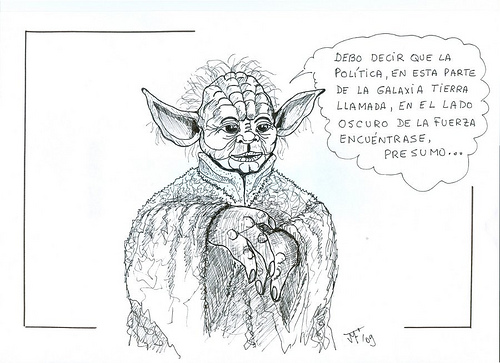 DEBO DECIR QUE LA
POLÍTICA, EN ESTA PARTE
DE LA GALAXIA TIERRA
LLAMADA, EN EL LADO
OSCURO DE LA FUERZA
ENCUÉNTRASE,
PRESUMO...